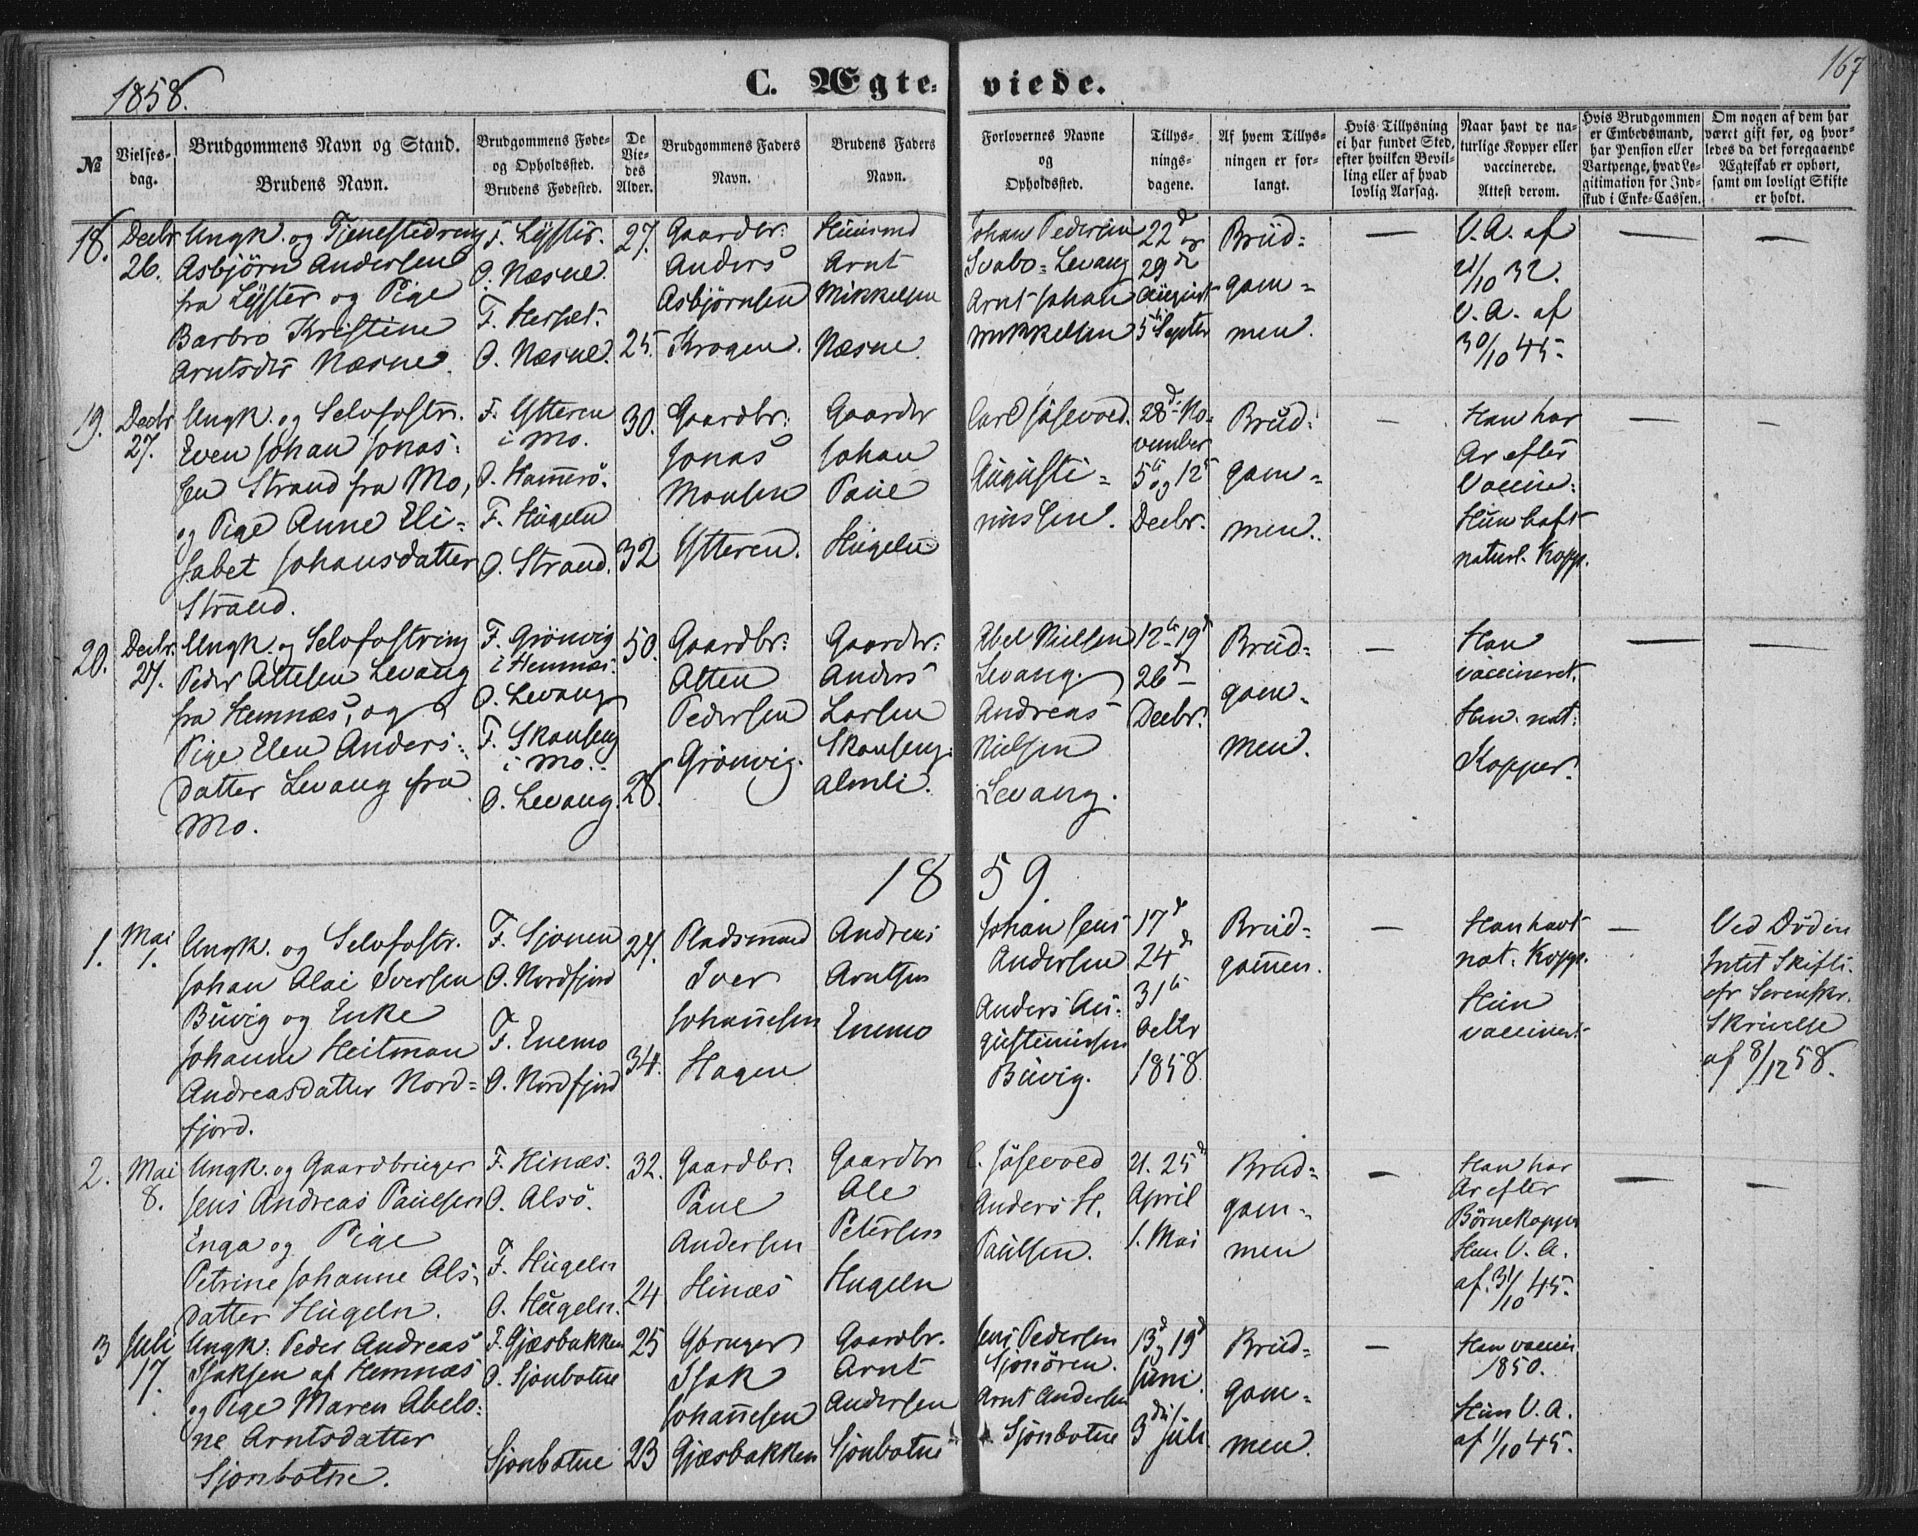 1858.
C. Ægteviede.
167
№
Vielsesdag.
Brudgommens Navn og Stand.
Brudens Navn.
Brudgommens Føde- og Opholdssted.
Brudens Fødested.
De Viedes Alder.
Brudgommens Faders Navn.
Brudens Faders Navn.
Forlovernes Navne og Opholdssted.
Tillysningsdagene.
Af hvem Tillysningen er forlangt.
Hvis Tillysning ei har fundet Sted, efter hvilken Bevilling eller af hvad lovlig Aarsag.
Naar havt de naturlige Kopper eller vaccinerede.
Attest derom.
Hvis Brudgommen er Embedsmand, har Pension eller Vartpenge, hvad Legitimation for Indskud i Enke-Cassen.
Om nogen af dem har været gift før, og hvorledes da det foregaaende Ægteskab er ophørt, samt om lovligt Skifte er holdt.
18.
Decbr
26.
Ungk. og Tjenestedreng
Asbjörn Andersen
fra Lyster og Pige
Barbro Kristine
Arntsdr Næsne.
F. Lyster.
O. Næsne.
F. Herset.
O. Næsne.
27.
25.
Gaardbr.
Anders
Asbjörnsen
Krogen.
Huusmd
Arnt
Mikkelsen
Næsne.
Johan Pedersen
Svabo-Levang
Arnt Johan
Mikkelsen
22d og
29de
August
5te Septer
Brud=
gom=
men.
—
V. A. af
21/10 32.
V. A. af
30/10 45.
—
—
19.
Decbr
27.
Ungk. og Selvfostr.
Even Johan Jonas-
sen Strand fra Mo,
og Pige Anne Eli-
sabet Johansdatter
Strand.
F. Ytteren
i Mo.
O. Hamerö.
F. Hugeln
O. Strand.
30.
32
Gaardbr.
Jonas
Monsen
Ytteren.
Gaardbr
Johan
Paul
Hugeln
Carl Jösevold.
Augusti=
nussen.
28de No-
vember
5te og 12te
Decbr.
Brud=
gom=
men.
—
Han har
Ar efter
Vaccine.
Hun haft
naturl. Kopp.
—
—
20.
Decbr.
27.
Ungk. og Selvfostring
Peder Attesen Levang
fra Hemnæs, og
Pige Elen Anders-
datter Levang fra
Mo.
F. Grönvig
i Hemnæs.
O. Levang
F. Skonseng
i Mo.
O. Levang.
50.
28.
Gaardbr.
Atten
Pedersen
Grönvig.
Gaardbr.
Anders
Larsen
Skonseng-
almli.
Abel Nielsen
Levang.
Andreas
Nielsen
Levang.
12te 19de
26de
Decbr.
Brud=
gom=
men.
—
Han
vaccineret.
Hun nat.
Kopper.
—
—
1859.
1.
Mai
1.
Ungk. og Selvfostr.
Johan Alai Iversen
Buvig og Enke
Johanne Heitman
Andreasdatter Nord=
fjord.
F. Sjonen
O. Nordfjord
F. Enemo
O. Nordfjord
34.
Pladsmand
Iver
Johannesen
Hagen
Andreas
Arntsen
Enemo
Johan Jens
Andersen
Anders Au-
gustinussen
Buvig.
17de
24de
31te
Octbr
1858
Brud=
gommen.
—
Han havt
nat. Kopp.
Hun
vaccineret.
—
Ved Döden
Intet Skifte
Skrivelse
af 8/12 58.
2.
Mai
8.
Ungk. og Gaardbruger
Jens Andreas Paulsen
Enga og Pige
Petrine Johanne Als-
datter Hugeln.
F. Hinæs.
O. Alsö.
F. Hugeln
O. Hugeln.
32.
24.
Gaardbr.
Paul
Andersen
Hinæs
Gaardbr
Ale
Petersen
Hugeln
C. Jösevold
Anders H.
Paulsen.
21. 25de
April
1. Mai
Brud=
gom=
men
—
Han har
Ar efter
Börnekopper
Hun V. A.
af 31/10 45.
—
—
3
Juli
17.
Ungk. Peder Andreas
Isaksen af Hemnæs
og Pige Maren Abelo-
ne Arntsdatter
Sjonbotne.
F. Gjæsbakken
O. Sjonbotne
Sjonbotne
25
23
Gbruger
Isak
Johannesen
Gjæsbakken
Gaardbr.
Arnt
Andersen
Sjonbotne
Jens Pedersen
Sjonören.
Arnt Andersen
Sjönbotne
13de og 19de
Juni.
3die Juli.
Brud=
gom=
men.
—
Han vaccin
1850.
Hun V. A.
af 1/10 45.